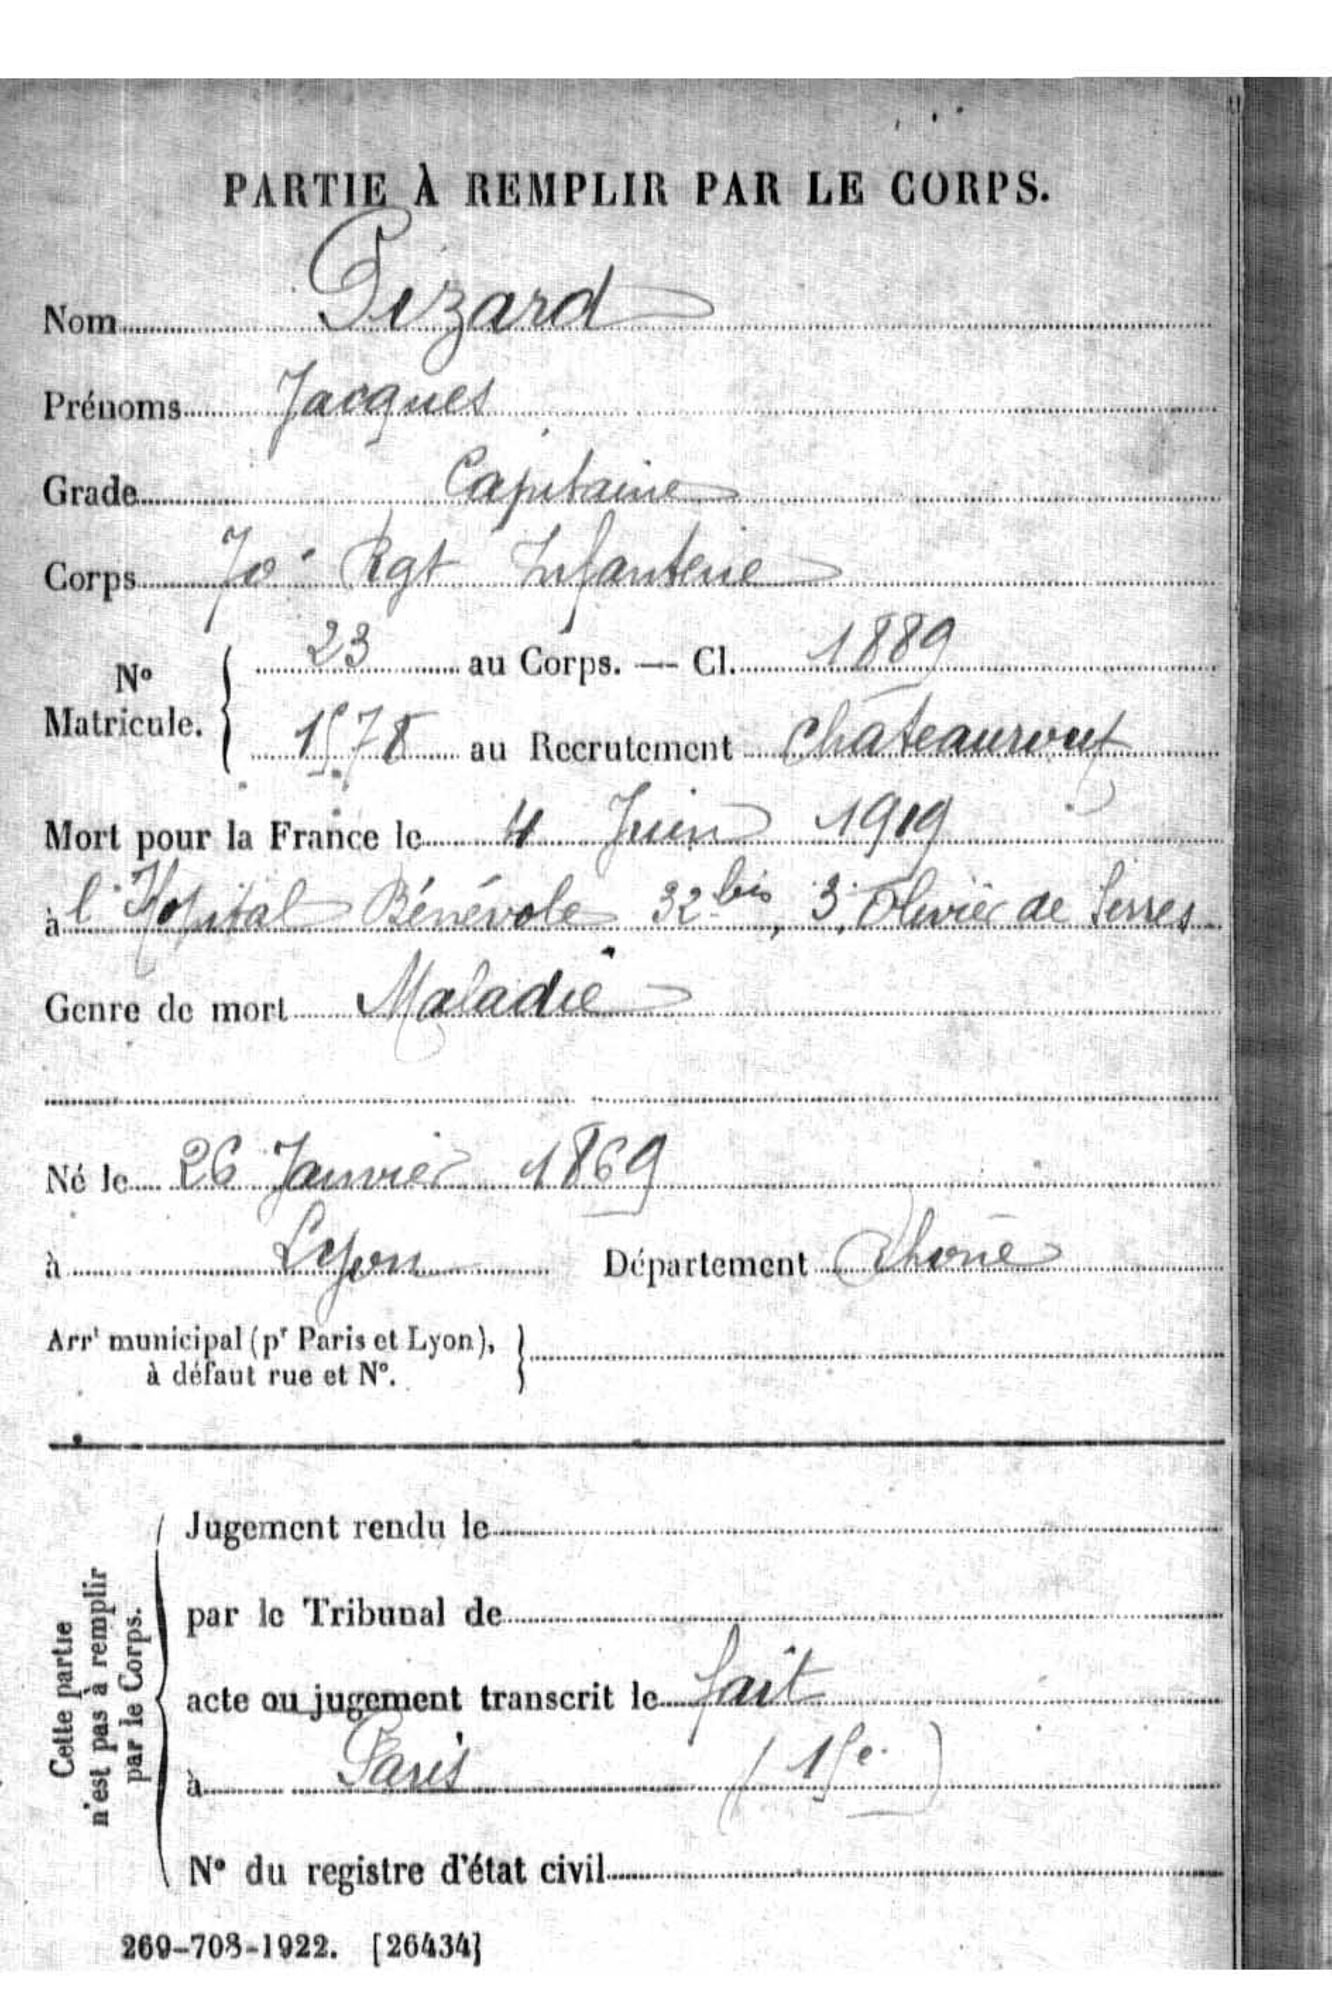 PARTIE À REMPLIR PAR LE CORPS.
Nom Pizard
Prénoms Jacques
Grade Capitaine
Corps 70e Rgt Infanterie
No Matricule. { 23 au Corps. — Cl. 1889
1578 au Recrutement Châteauroux
Mort pour la France le 4 Juin 1919
à l'Hopital Bénévole 32 bis, 3, Olivier de Serres
Genre de mort Maladie
Né le 26 Janvier 1869
à Lyon Département Rhône
Arrt municipal (pr Paris et Lyon),
à défaut rue et N°.
Cette partie
n'est pas à remplir
par le Corps.
Jugement rendu le
par le Tribunal de
acte ou jugement transcrit le fait
à Paris (15e)
N° du registre d'état civil
269-708-1922. [26434]